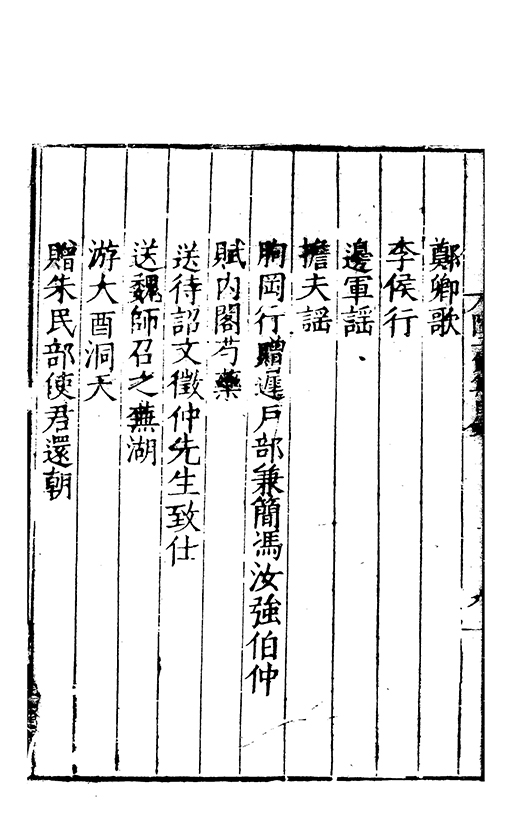 鄭卿歌
李侯行
邊軍謡
擔夫謡
朐岡行贈遲戶部兼簡馮汝強伯仲
賦内閣芍藥
送待詔文徵仲先生致仕
送魏師召之蕪湖
游大酉洞天
贈朱民部使君還朝